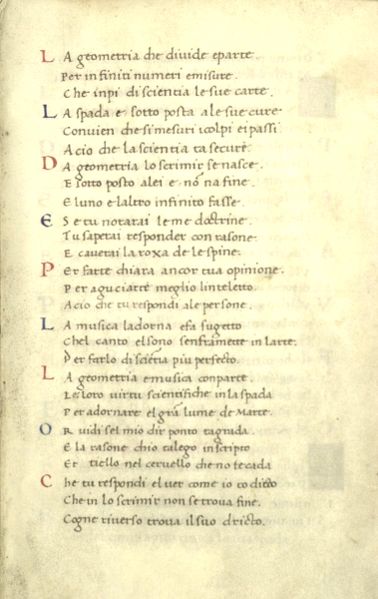 L A geometria che divide eparte.
Per infiniti numeri emisure.
Che inpi di scientia le sue carte.
L A spada e sotto posta ale sue cure
Convien che si mesuri icolpi ei passi
Acio che la scientia ta secure.
D A geometria lo scrimir se nasce.
E sotto posto alei e nō na fine.
E luno e laltro infinito fasse.
E S e tu notarai le me doctrine.
Tu saperai responder con rasone.
E cauerai la roxa de le spine.
P Er farte chiara ancor tua opinione.
Per aguciatte meglio linteletto.
Acio che tu respondi ale persone.
L A musica ladorna efa sugetto
Chel canto elsono senframette in larte.
Per farlo di sciētia piu perfecto.
L A geometria e musica conparte.
Le loro virtu scientifiche in la spada
Per adornare el grā lume de Marte.
O R vidi sel mio dir ponto tagrada.
E la rasone chio talego inscripto
E tiello nel cervello che no te cada
C he tu respondi el uer come io to dicto
Che in lo scrimir non se trova fine.
Cogne riverso trova il suo dricto.